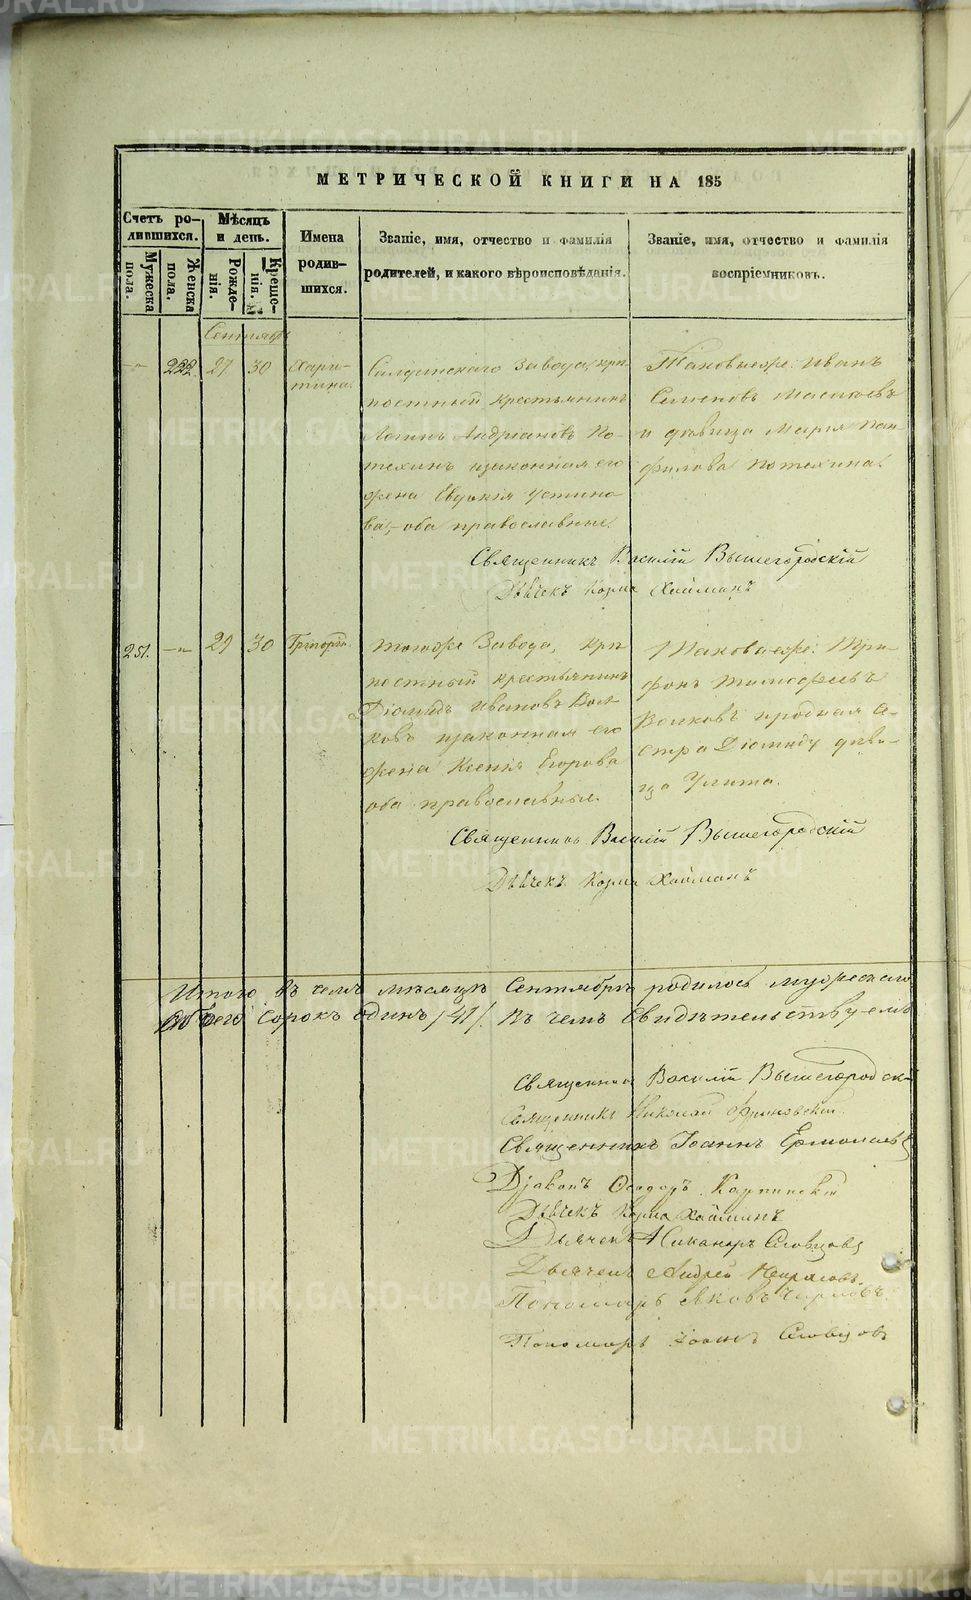 МЕТРИЧЕСКОЙ КНИГИ НА 185
Счетъ ро-
дившихся.
Мужеска
пола.
Женска
пола.
Мѣсяцъ
и день.
Рожде-
нія.
Креще-
нія.
Имена
родив-
шихся.
Званіе, имя, отчество и фамилія
родителей, и какого вѣроисповѣданія.
Званіе, имя, отчество и фамилія
воспріемниковъ.
Сентябрь
222. 27 30 Хари-
тина.
Салдинскаго Завода, крѣ
постный крестьянинъ
Андріановъ По-
техинъ изаконная его
жена Евдокія Устино
ва,-оба православные.
Таковыеже: Иванъ
Семеновъ
и дѣвица Марія Пан-
филова Потехина.
Священникъ Василій Вышегородскій
Дьячекъ Козма
251. 29 30 Григорій
тогоже Завода, крѣ
постный крестьянинъ
Діомидъ Ивановъ Вол
ковъ изаконная его
жена Ксенія Егорова
оба православныя.
Таковыеже: Три-
фонъ Тимофеевъ
Волковъ иродная се-
стра Діомиду дѣви-
ца Улита.
Священникъ Василій Вышегородскій
Дьячекъ Козма
Итого въ семъ мѣсяцѣ Сентябрѣ родилось мужескаго
сорокъ одинъ /41/. Въ чемъ свидѣтельствуемъ
Священникъ Василій Вышегородскій
Священникъ Николай
Священникъ Іоаннъ Ермолаевъ
Діаконъ Ѳеодоръ Карпинскій
Дьячекъ Козма
Дьячекъ Никаноръ Словцовъ
Дьячекъ Андрей Некрасовъ
Пономарь Яковъ
Пономарь Іоаннъ Словцовъ
METRIKI.GASO-URAL.RU